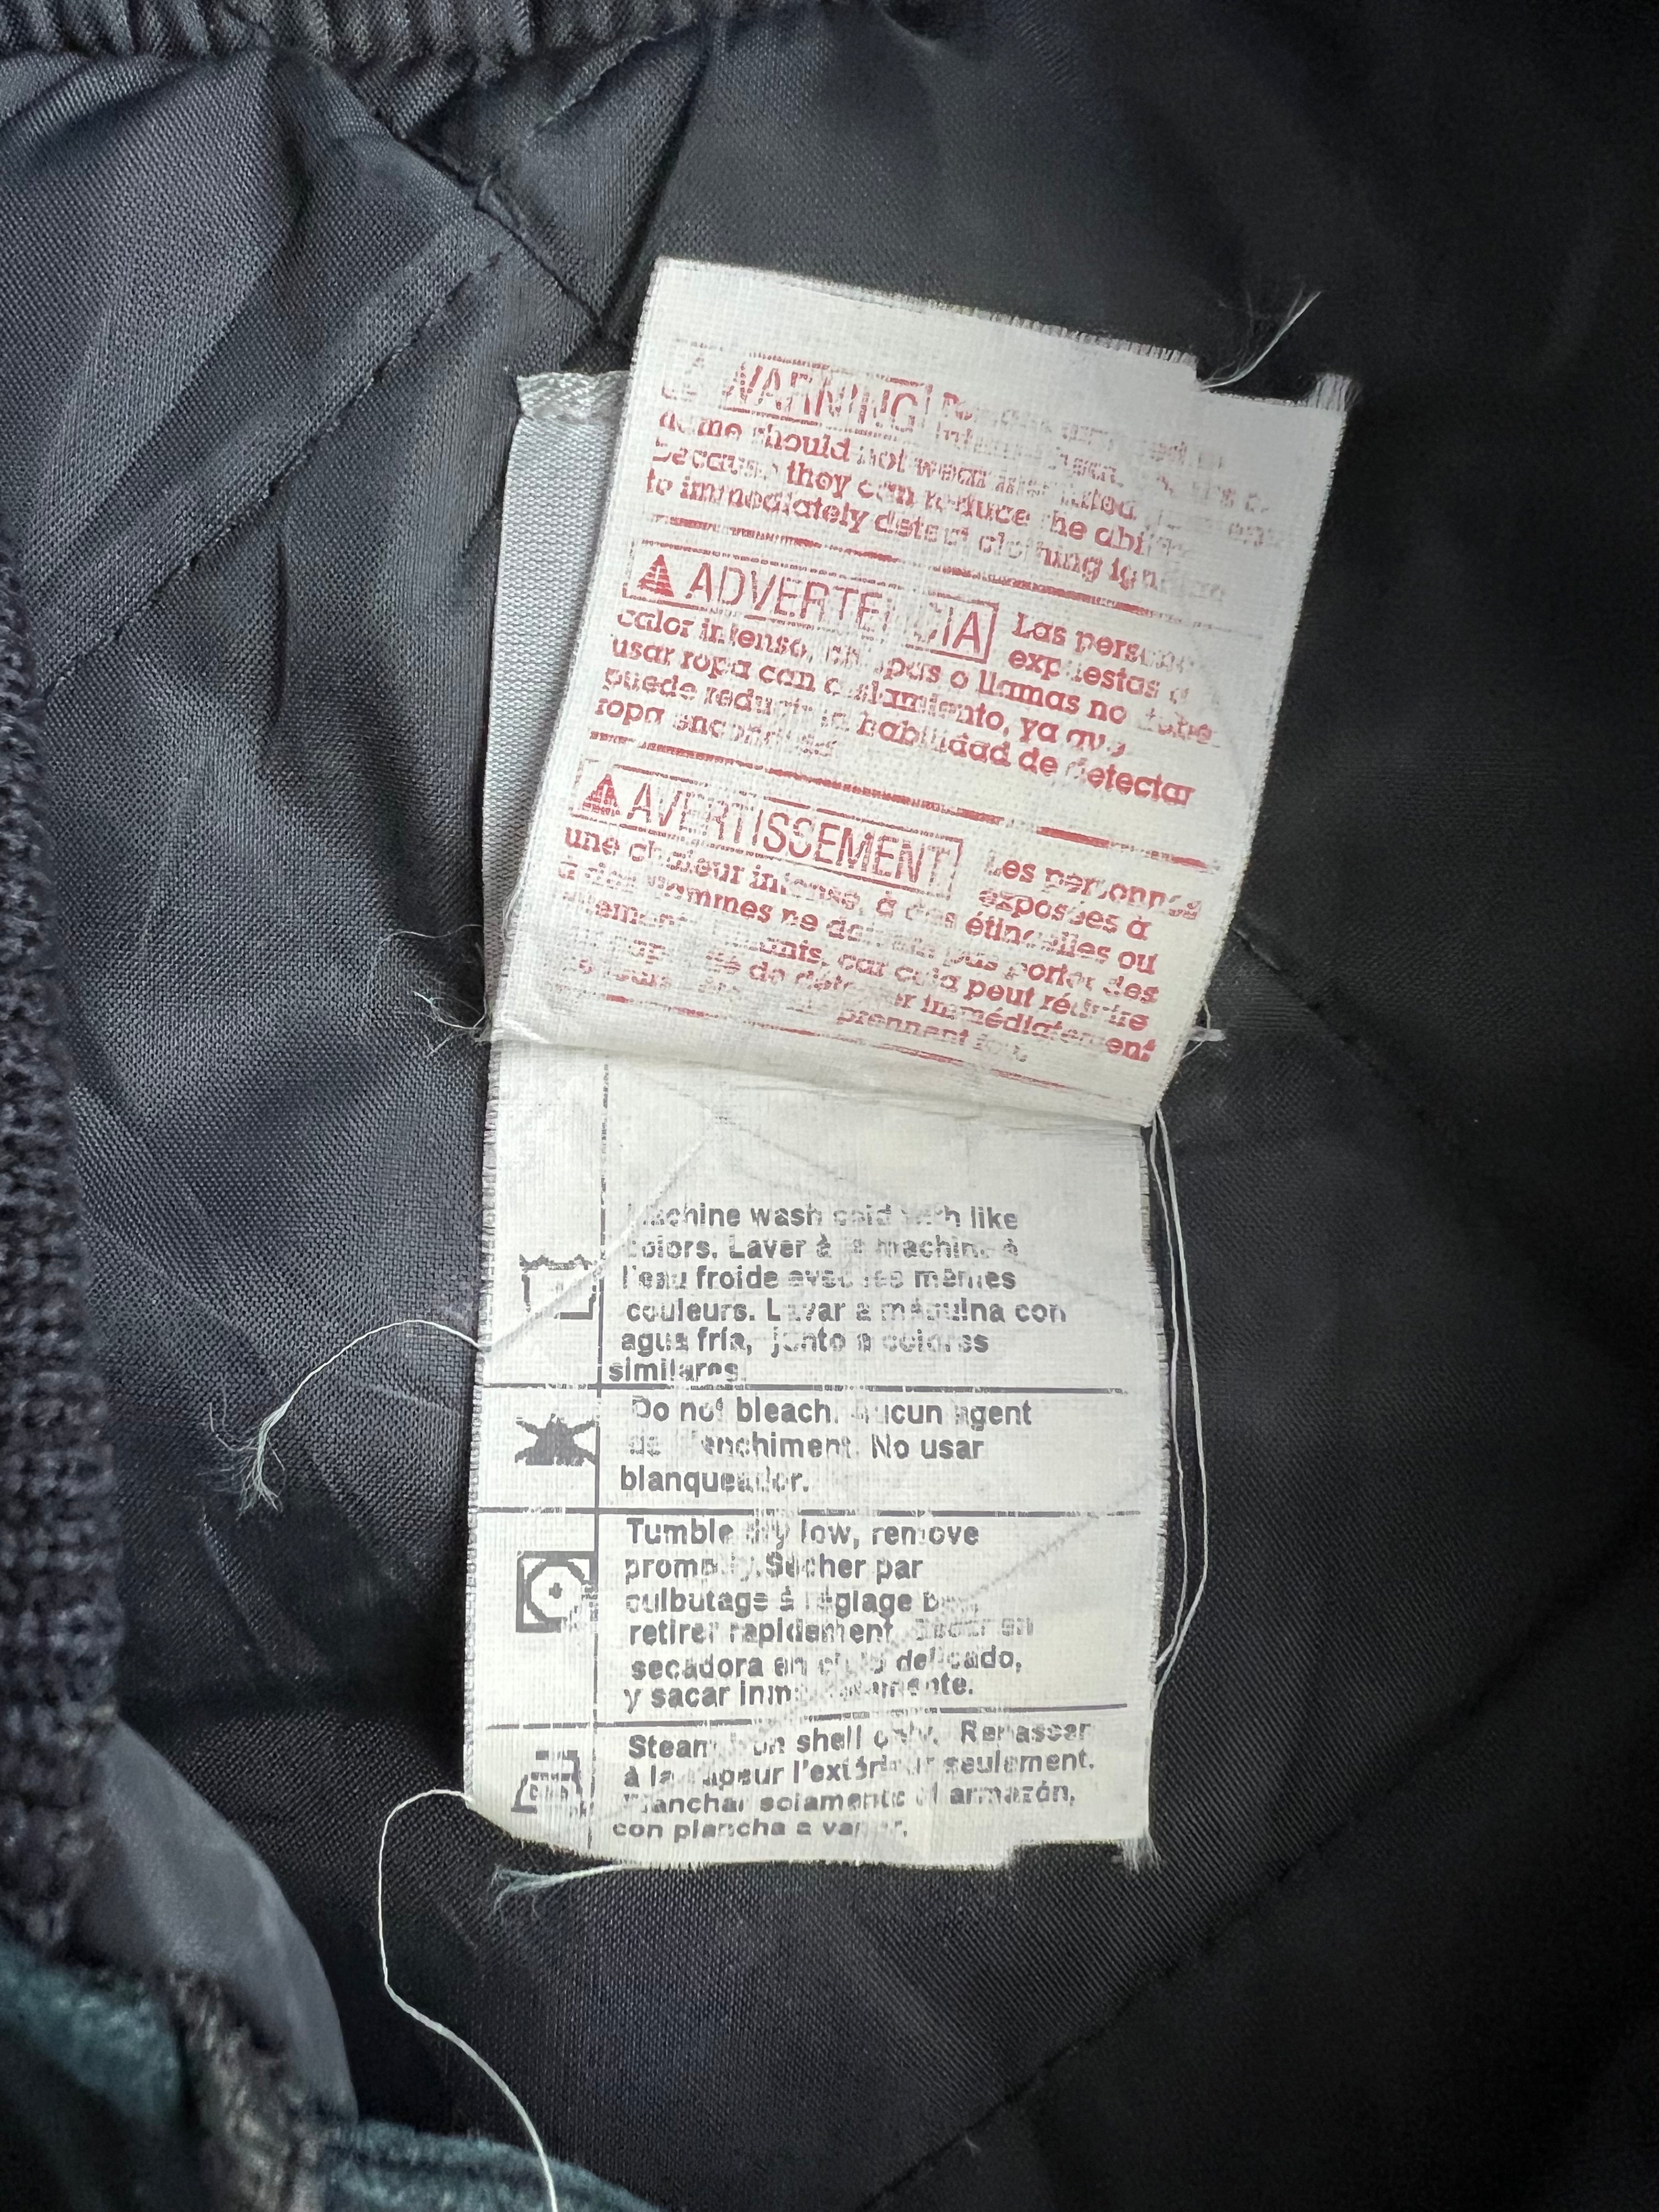 WARNING
should not wear
they can reduce the
to immediately detect clothing
ADVERTENCIA Las personas
expuestas a
calor intenso, chispas o llamas no debe
usar ropa con aislamiento, ya que
puede reducir la habilidad de detectar
ropa
AVERTISSEMENT Les personnes
exposées à
une chaleur intense, à des étincelles ou
à des flammes ne doivent pas porter des
car cela peut réduire
de détecter immédiatement
prennent feu.
Machine wash cold with like
colors. Laver à la machine à
l'eau froide avec les mêmes
couleurs. Lavar a máquina con
agua fría, junto a colores
similares.
Do not bleach. Aucun agent
de blanchiment. No usar
blanqueador.
Tumble dry low, remove
promptly. Sécher par
culbutage à réglage bas,
retirer rapidement. Secar en
secadora en ciclo delicado,
y sacar inmediatamente.
Steam iron shell only. Repasser
à la vapeur l'extérieur seulement.
Planchar solamente el armazón,
con plancha a vapor.